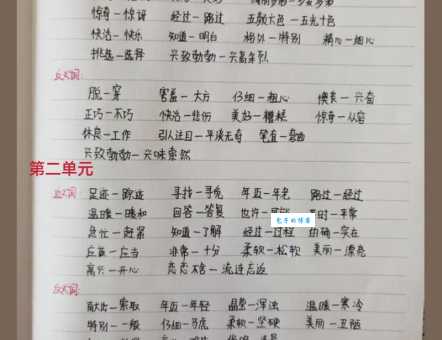 惊奇—惊讶 经过—路过 五颜六色—五光十色
快活—快乐 知道—明白 格外—特别 精心—细心
挑选—选择 兴致勃勃—兴高采烈
反义词:
脱—穿 害羞—大方 仔细—粗心
正巧—不巧 快活—悲伤 美好—糟糕 惊奇—从容
休息—工作 引人注目—平淡无奇 笔直—弯曲
兴致勃勃—兴味索然
第二单元
足迹—踪迹 寻找—寻觅 年迈—年老 路过—经过
温暖—暖和 回答—答复 也许—
急忙—赶紧 知道—了解 经过—过程 的确—实在
应当 非常—十分 柔软—松软 美丽—漂亮
高兴—开心 恋恋不舍—流连忘返
反义词:
献出—索取 年迈—年轻 晶莹—浑浊 温暖—寒冷
特别—一般 仔细—马虎 柔软—坚硬 美丽—丑陋